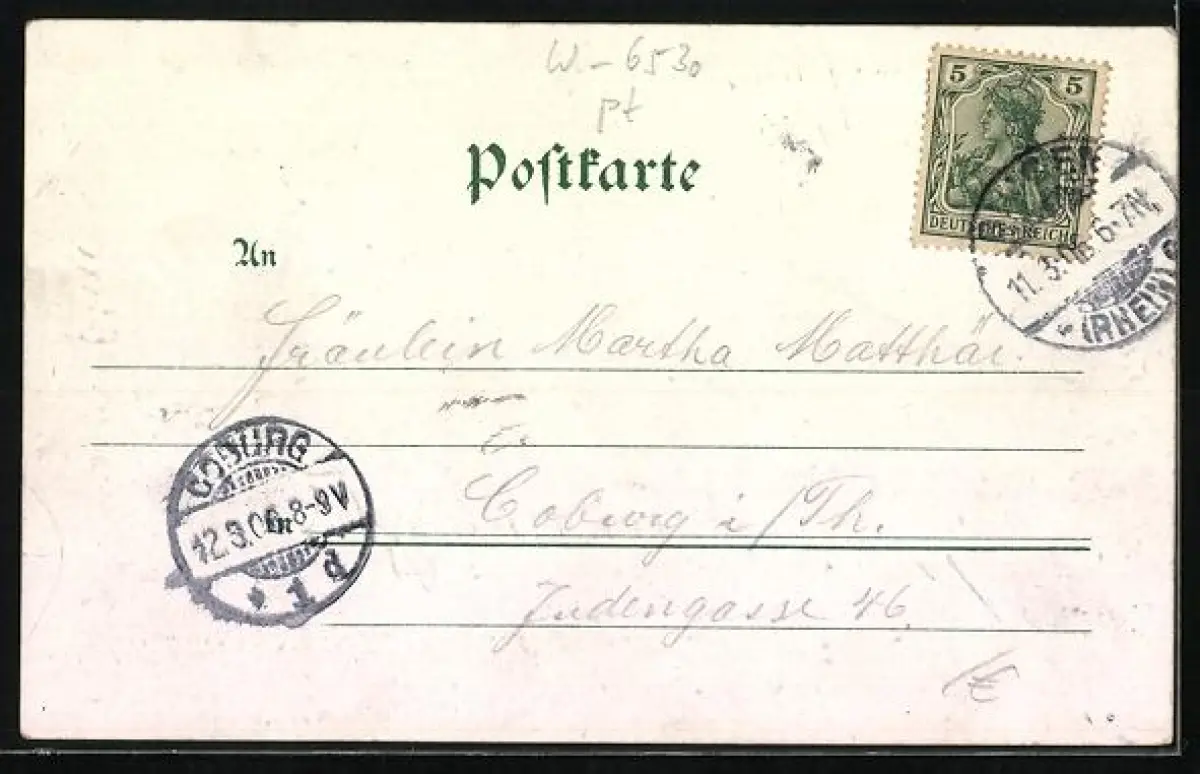 W-6530
pt
Postkarte
5 5
DEUTSCHES REICH
11.3.06 6-7N.
(RHEIN)
An
Fräulein Martha Matthäi.
COBURG
12.3.06 8-9V
1d
in
Coburg i/Th.
Judengasse 46.